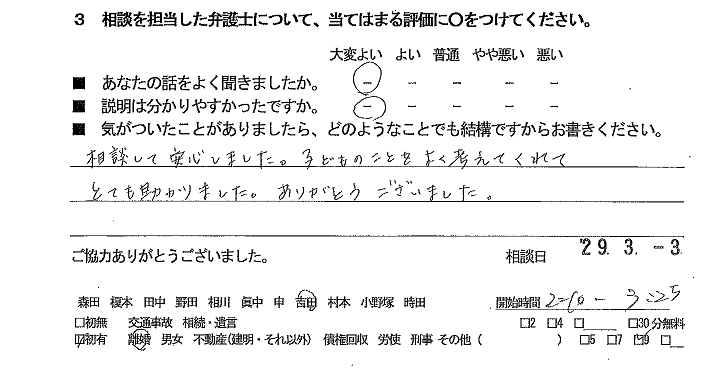 3 相談を担当した弁護士について、当てはまる評価に○をつけてください。
大変よい よい 普通 やや悪い 悪い
■ あなたの話をよく聞きましたか。 － － － － －
■ 説明は分かりやすかったですか。 － － － － －
■ 気がついたことがありましたら、どのようなことでも結構ですからお書きください。
相談して安心しました。子どものことをよく考えてくれて
とても助かりました。ありがとうございました。
ご協力ありがとうございました。 相談日 '29.3.-3.
森田 榎本 田中 野田 相川 眞中 申 吉田 村本 小野塚 時田 開始時間
□初無 交通事故 相続・遺言 □2 □4 □ □30分無料
☑初有 離婚 男女 不動産(建明・それ以外) 債権回収 労使 刑事 その他 ( ) □5 □7 ☑9 □